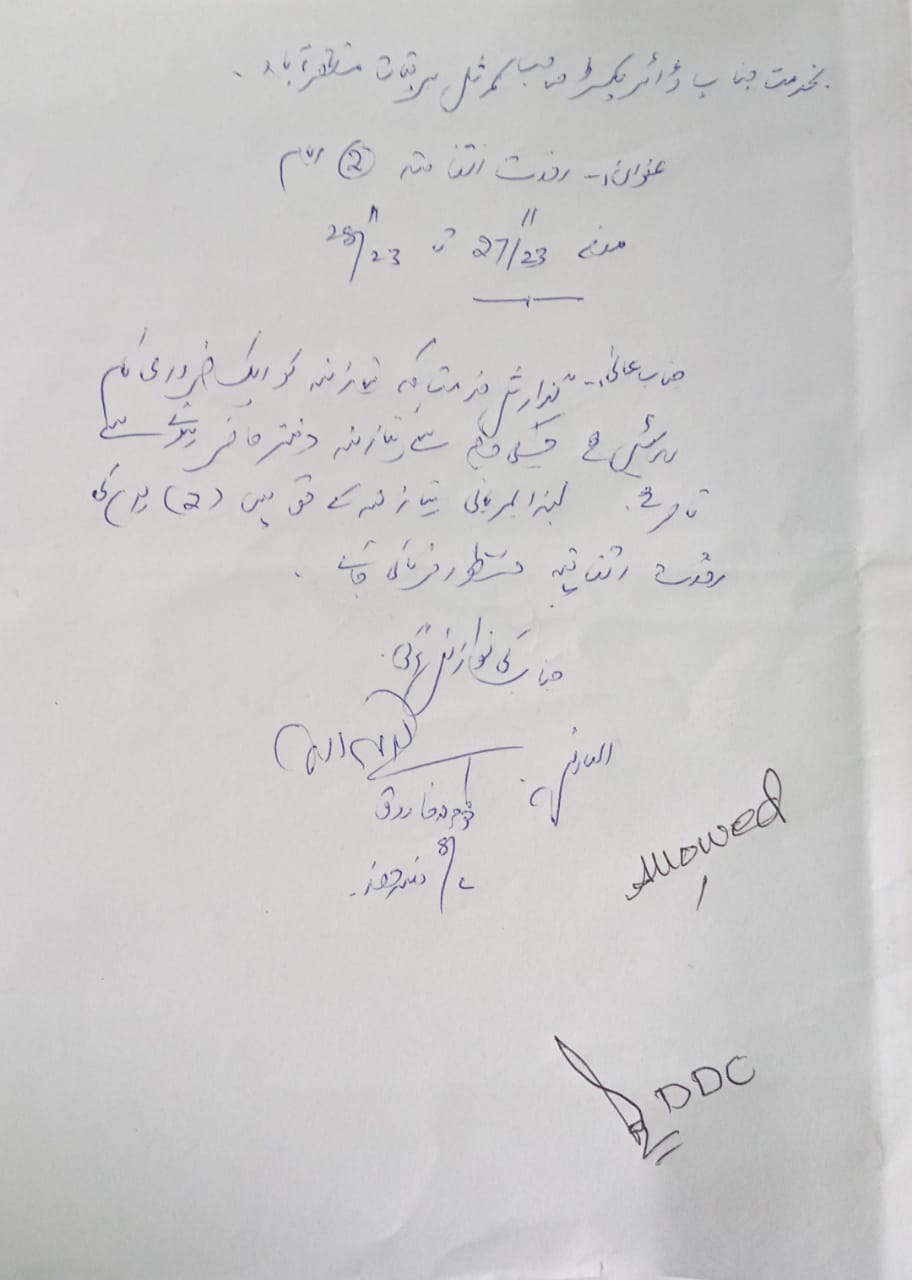 بخدمت جناب ڈائریکٹر صاحب کمرشل برقیات مظفرآباد۔
عنوان:- رخصت اتفاقیہ ② ایام
مورخہ 27/11/23 تا 28/11/23
جناب عالی:- گذارش خدمت ہے کہ نیازمند کو ایک ضروری کام
درپیش ہے جسکی وجہ سے نیازمند دفتر حاضر ہونے سے
قاصر ہے۔ لہذا بمہربانی نیازمند کے حق میں (2) یوم کی
رخصت اتفاقیہ منظور فرمائی جائے۔
جناب کی نوازش ہوگی۔
العارض
فاروق
Allowed
DDC